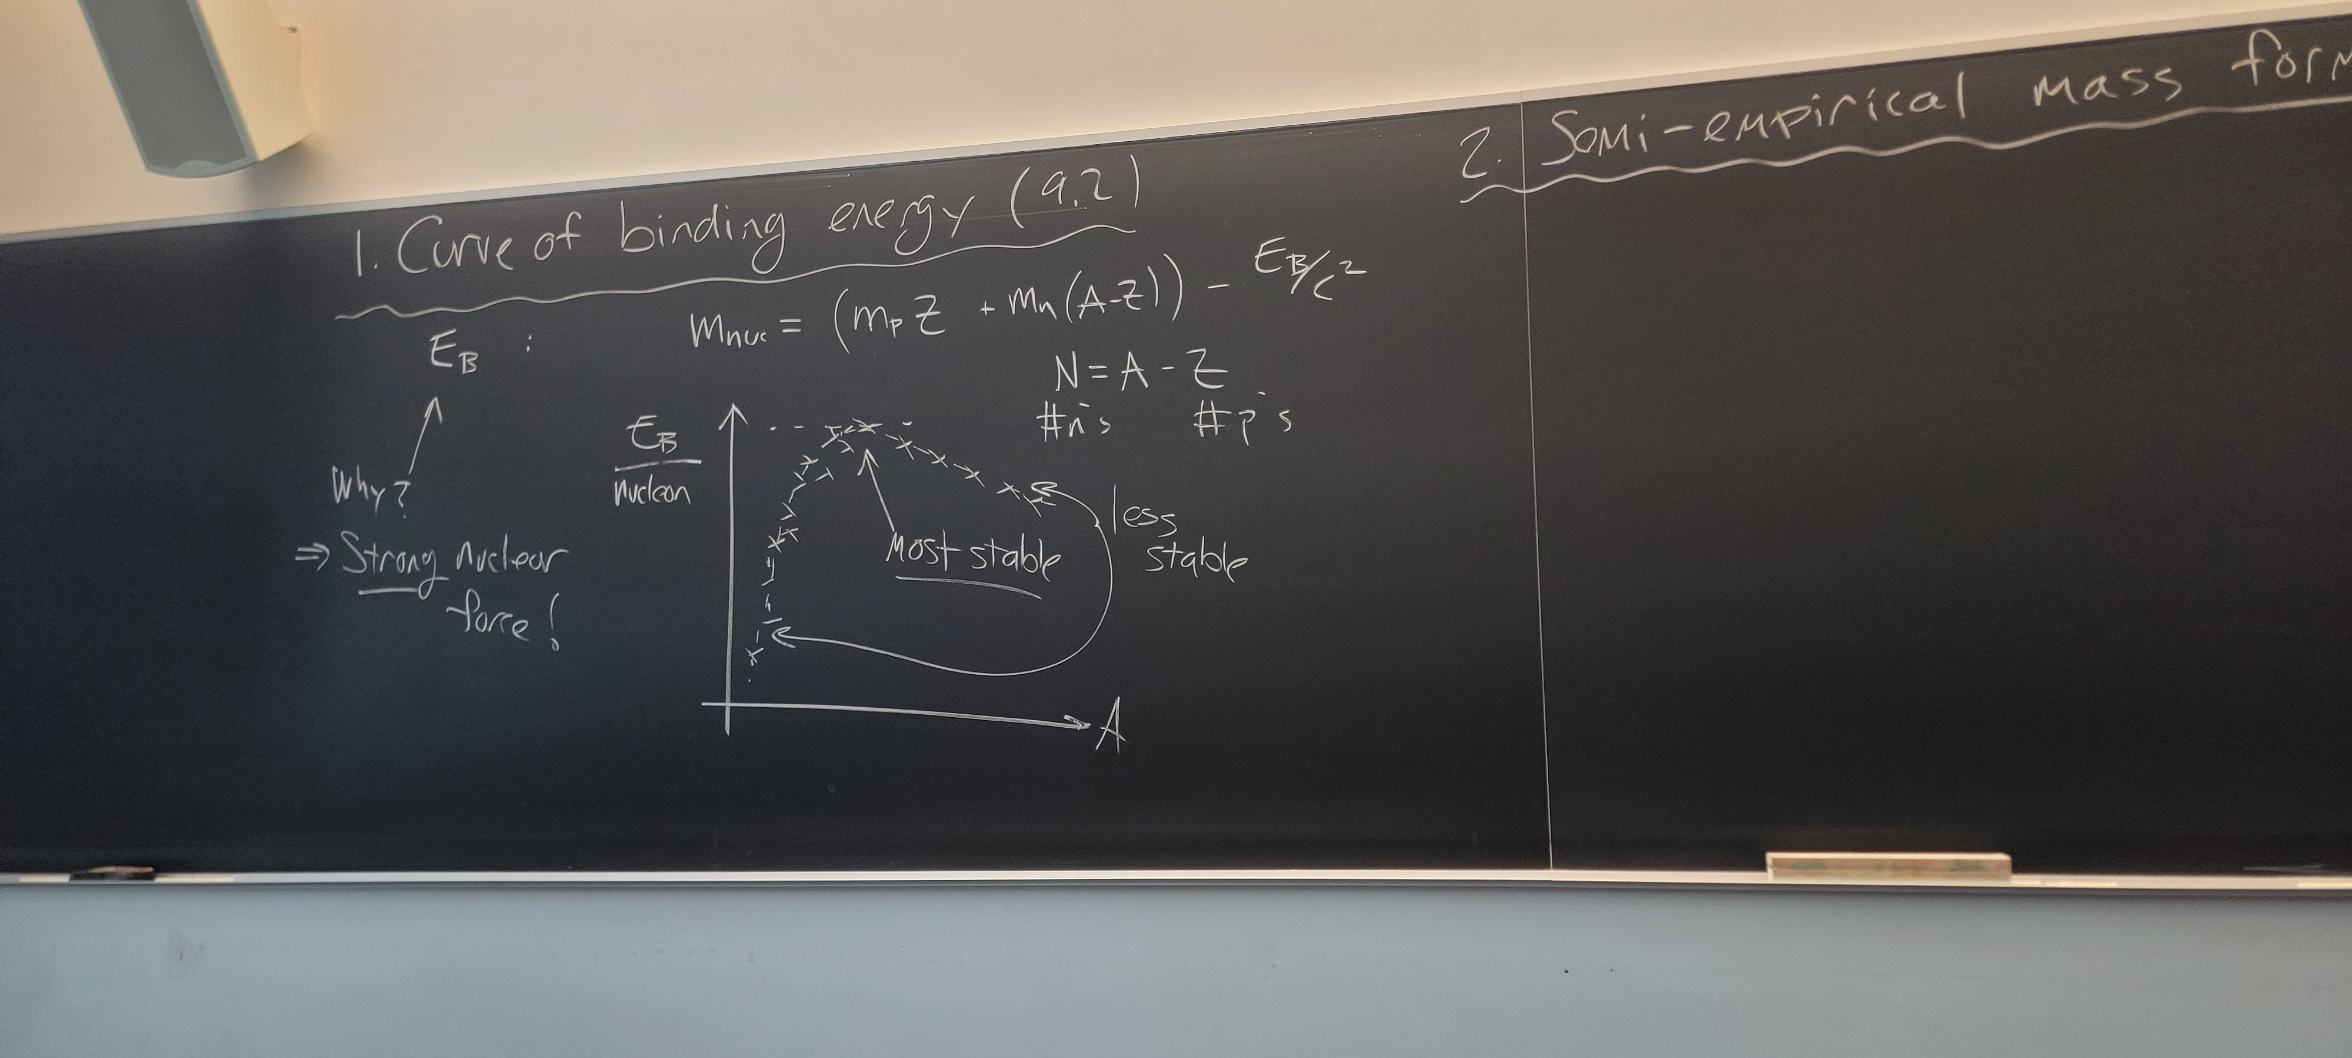 1. Curve of binding energy (9.2)
E_B :
m_nuc = (m_p Z + m_n (A-Z)) - E_B/c²
N = A - Z
#n's #p's
Why?
⇒ Strong nuclear
force!
E_B
nucleon
Most stable
less
stable
A
2. Semi-empirical mass form